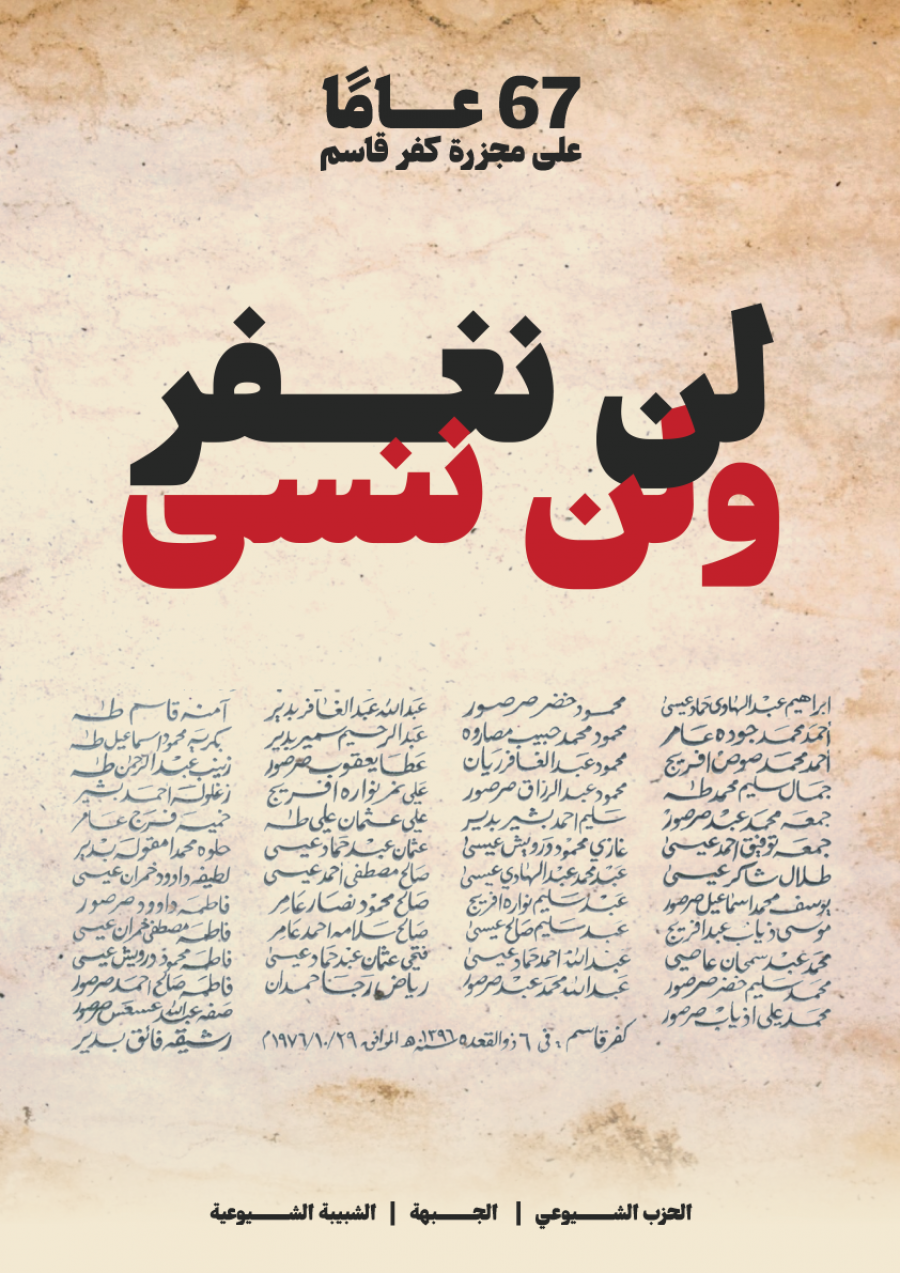 67 عامًا
على مجزرة كفر قاسم
لن نغفر
ولن ننسى
ابراهيم عبد الهادي حماد عيسى
أحمد محمد جوده عامر
أحمد محمد صوص افريج
جمال سليم محمد طه
جمعه محمد عبد صرصور
جمعه توفيق احمد عيسى
طلال شاكر عيسى
يوسف محمد اسماعيل صرصور
موسى ذياب عبد افريج
محمد عبد سمحان عاصي
محمد سليم خضر صرصور
محمد علي اذياب صرصور
محمود خضر صرصور
محمود محمد حبيب مصاروه
محمود عبد الغافر ريان
محمود عبد الرزاق صرصور
سليم احمد بشير بدير
غازي محمود درويش عيسى
عبد محمد عبد الهادي عيسى
عبد سليم نواره افريج
عبد سليم صالح عيسى
عبد الله احمد حماد عيسى
عبد الله محمد عبد صرصور
عبد الله عبد الغافر بدير
عبد الرحيم سمير بدير
عطا يعقوب صرصور
علي نمر نواره افريج
علي عثمان علي طه
عثمان عبد حماد عيسى
صالح مصطفى أحمد عيسى
صالح محمود نصار عامر
صالح سلامه احمد عامر
فتحي عثمان عبد حماد عيسى
رياض رجا حمدان
آمنه قاسم طه
بكريه محمود اسماعيل طه
زينب عبد الرحمن طه
زغلوله احمد بشير
خميسه فرج عامر
حلوه محمد بدير
لطيفه داوود حمران عيسى
فاطمه داوود صرصور
فاطمه مصطفى خمران عيسى
فاطمه محمود درويش عيسى
فاطمه صالح احمد صرصور
صفه عبد الله صرصور
رشيقه فائق بدير
كفر قاسم : في ٦ ذو القعده سنة ١٣٩٦ ه الموافق ١٩٧٦/١٠/٢٩م
الحزب الشيوعي | الجبهة | الشبيبة الشيوعية